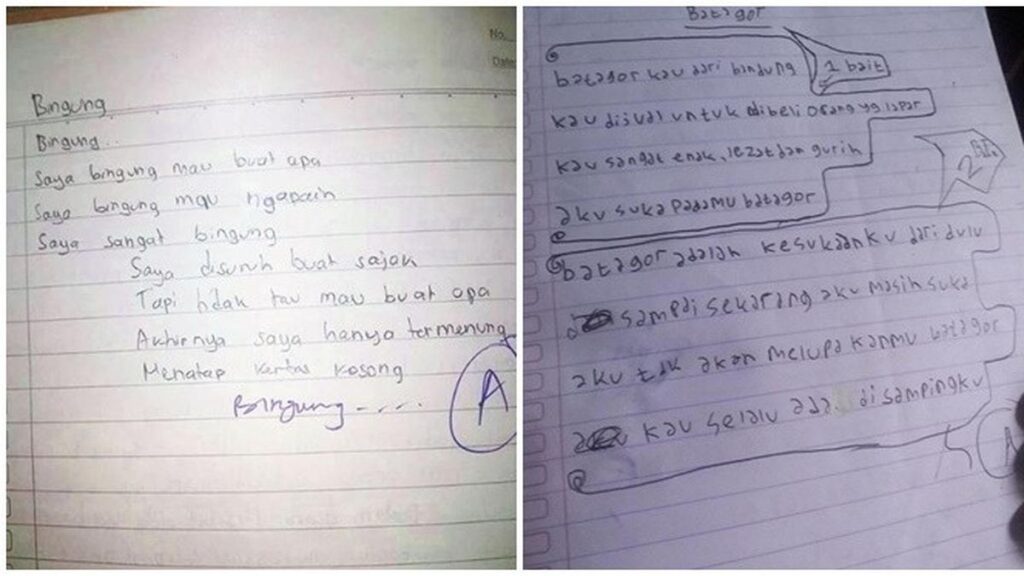 No.
Date
Bingung
Bingung..
Saya bingung mau buat apa
Saya bingung mau ngapain
Saya sangat bingung
Saya disuruh buat sajak
Tapi tidak tau mau buat apa
Akhirnya saya hanya termenung
Menatap kertas kosong
Bingung.....
A
Batagor
batagor kau dari bandung
1 bait
kau dijual untuk dibeli orang yg lapar
kau sangat enak, lezat dan gurih
aku suka padamu batagor
2
batagor adalah kesukaanku dari dulu
sampai sekarang aku masih suka
aku tak akan melupakanmu batagor
kau selalu ada disampingku
A